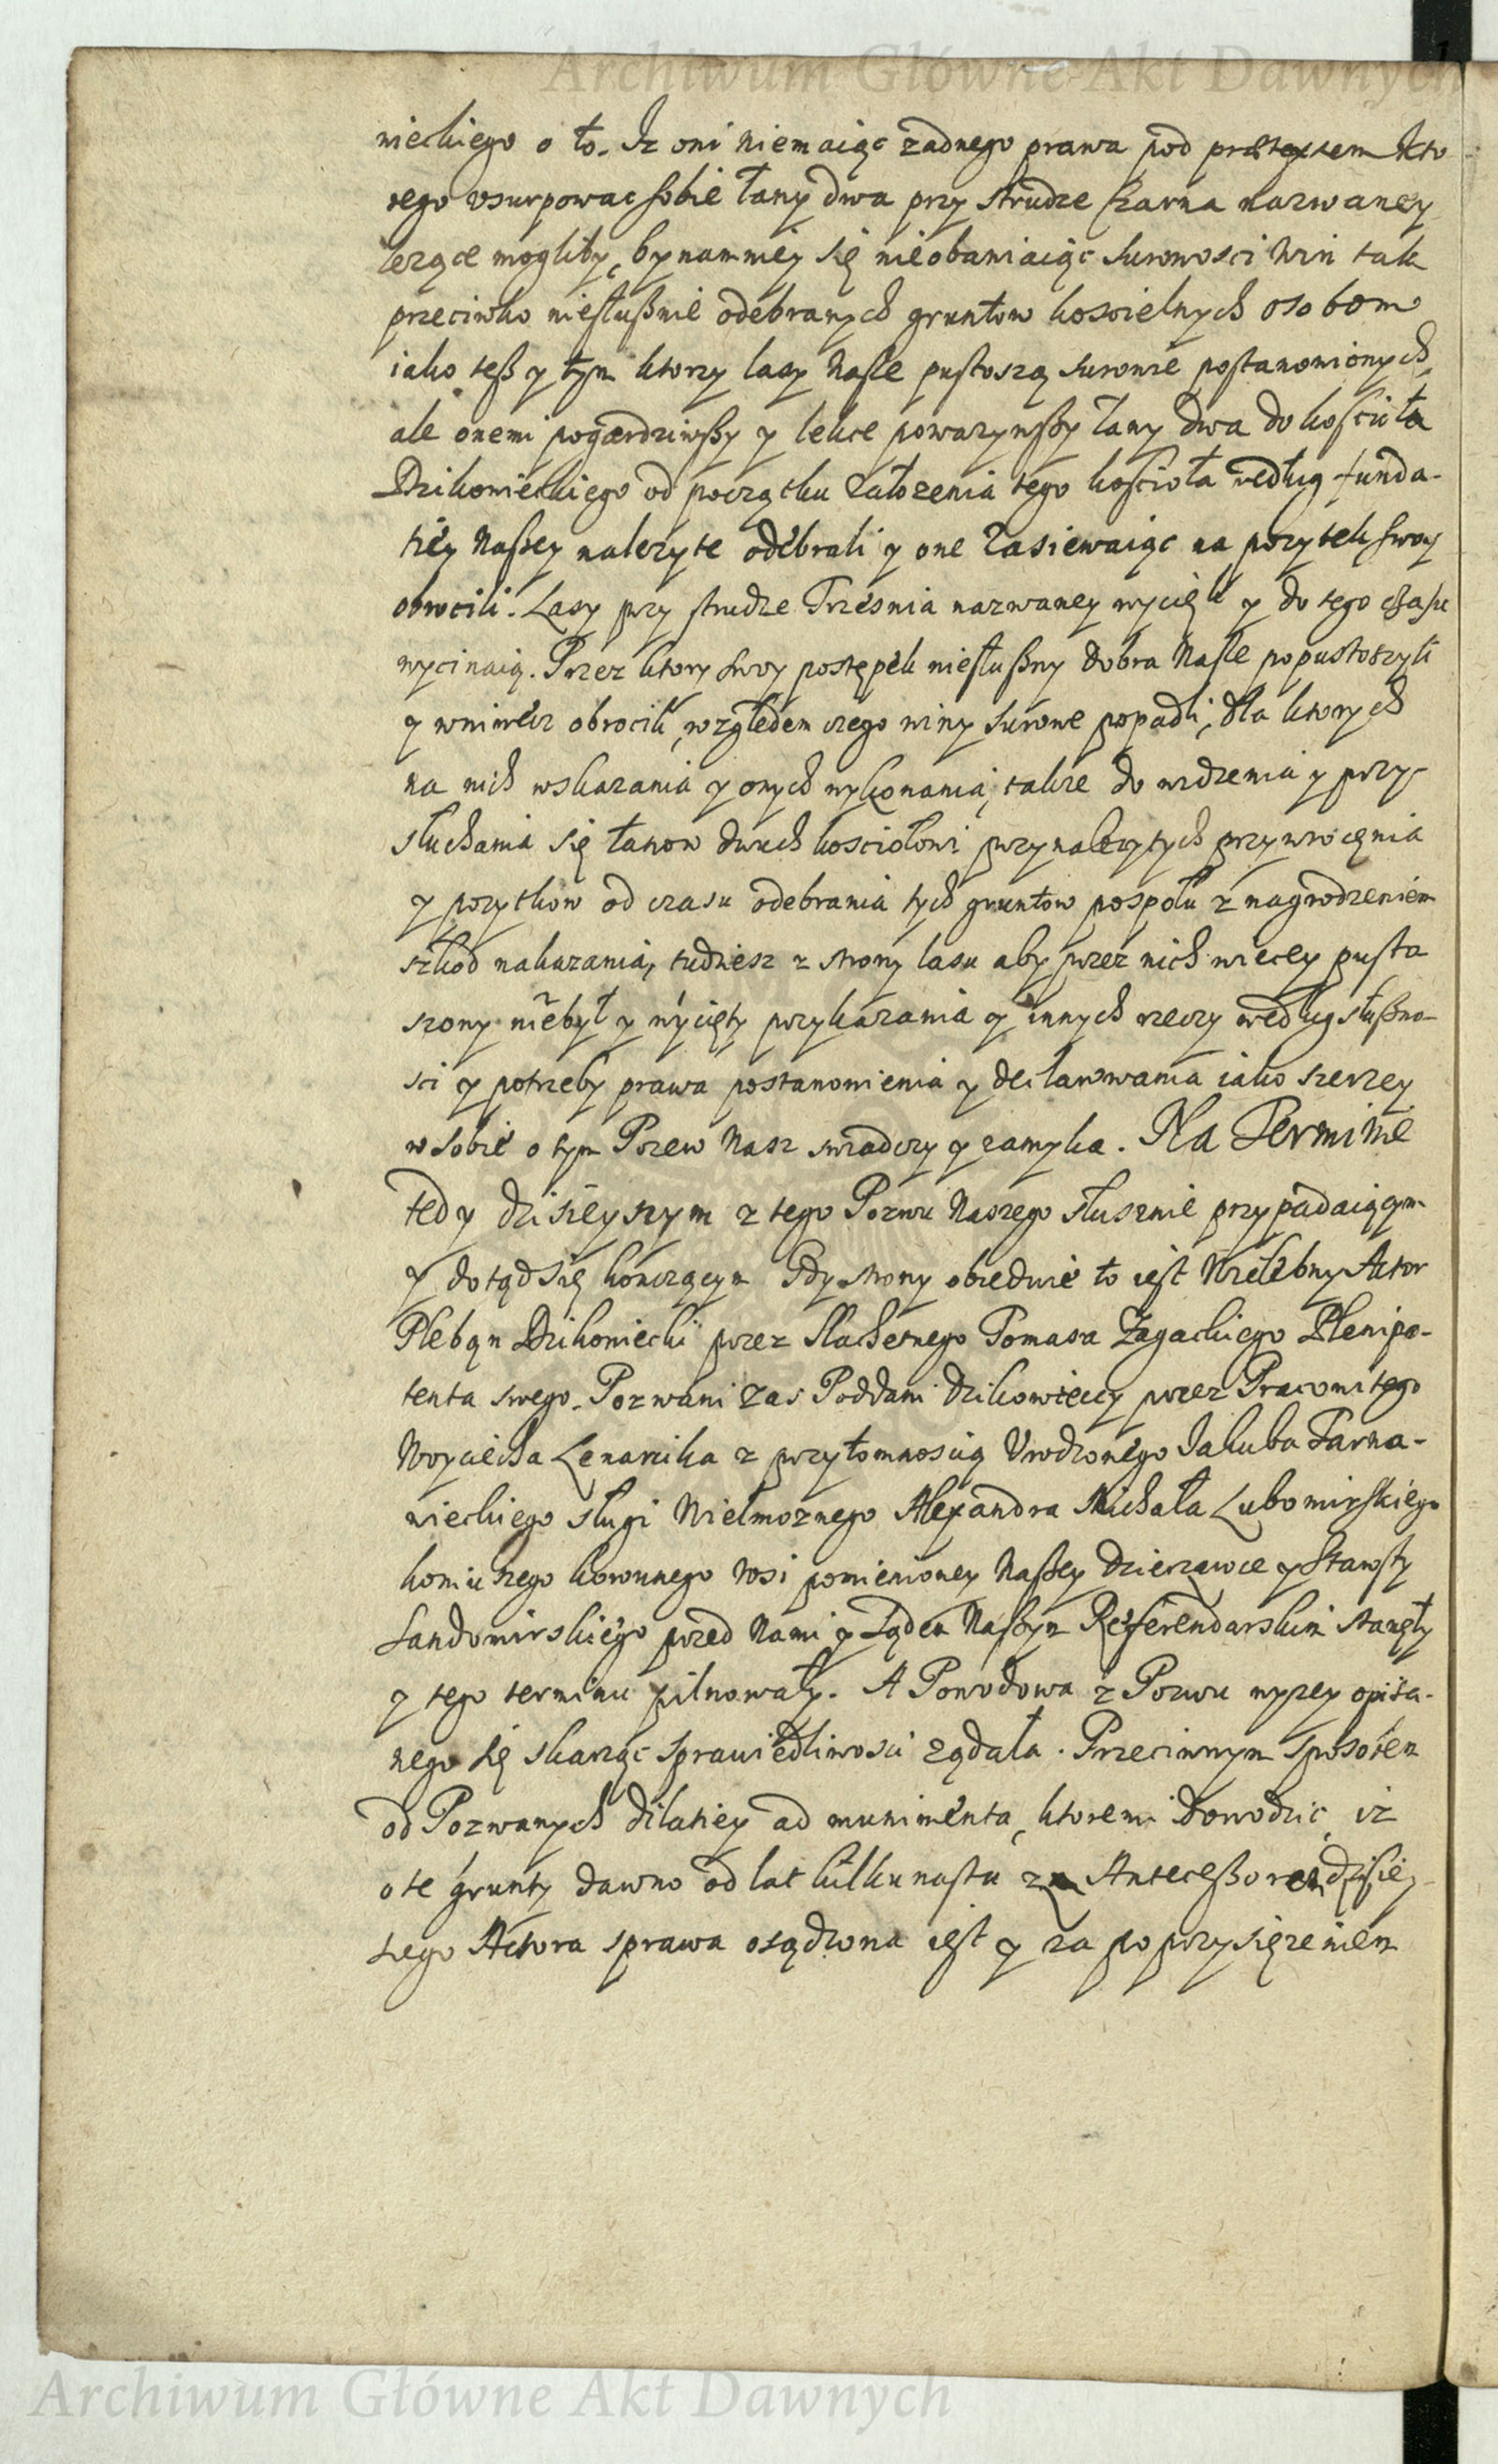 Archiwum Główne Akt Dawnych
nieckiego o to. Iz oni niemaiąc zadnego prawa pod prætextem kto
rego vsurpowac sobie łany dwa przy strudze Czarna nazwaney
lezące mogliby, bynamniey się nieobawiaiąc surowosci win tak
przeciwko niesłußnie odebranych gruntow koscielnych osobom
iako teß y tym ktorzy lasy nasze pustoszą surowie postanowionych,
ale onemi pogardziwßy y lekce powazywßy łany dwa do koscioła
Dzikowieckiego od początku załozenia tego koscioła według funda-
tiey naßey nalezyte odebrali y one zasiewaiąc na pozytek swoy
obrocili. Lasy przy strudze Trzesnia nazwaney wycięli y do tego czasu
wycinaią. Przez ktory swoy postępek niesłußny dobra nasze popustoszyli
y wniwecz obrocili, względem czego winy surowe popadli, dla ktorych
na nich wskazania y onych wykonania, takze do widzenia y przy-
słuchania się łanow dwuch kosciołowi przynalezytych przywrocęnia
y pozytkow od czasu odebrania tych gruntow pospołu z nagrodzeniem
szkod nakazania, tudziesz z strony lasu aby przez nich więcey pusta
szony niebył y wycięty przykazania y innych rzeczy według słußno-
sci y potrzeby prawa postanowienia y declarowania iako szerzey
w sobie o tym Pozew nasz swiadczy y zamyka. Na Terminie
tedy dzisieyszym z tego Pozwu naszego słusznie przypadaiącym
y dotąd się kończącym gdy strony obiedwie to iest Wielebny Actor
Pleban Dzikowiecki przez Slachetnego Tomasza Zagackiego Plenipo-
tenta swego. Pozwani zas Poddani dzikowieccy przez Pracowitego
Woyciecha Lenarcika z przytomnoscią Vrodzonego Jakuba Tarna-
wieckiego sługi Wielmoznego Alexandra Michała Lubomirskiego
koniuszego koronnego wsi pomienioney naßey dzierzawce y Starosty
Sandomirskiego przed nami y Sądem naßym Referendarskim stanęły
y tego terminu pilnowały. A Powodowa z Pozwu wyzey opisa-
nego się skarząc sprawiedliwosci ządała. Przeciwnym sposobem
od Pozwanych dilatiey ad munimenta, ktoremi dowodzic, iz
o te grunty dawno od lat kilkunastu z Antecessorem dzisiey-
szego Actora sprawa osądzona iest y za poprzysięzeniem
Archiwum Główne Akt Dawnych